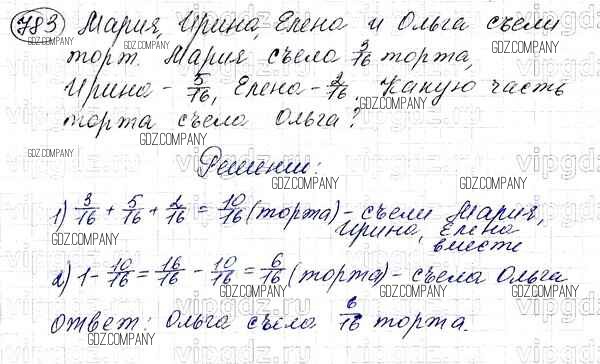 783 Мария, Ирина, Елена и Ольга съели
торт. Мария съела 3/16 торта,
Ирина - 5/16, Елена - 2/16. Какую часть
торта съела Ольга?
Решение:
1) 3/16 + 5/16 + 2/16 = 10/16 (торта) - съели Мария,
Ирина, Елена
вместе
2) 1 - 10/16 = 16/16 - 10/16 = 6/16 (торта) - съела Ольга
Ответ: Ольга съела 6/16 торта.